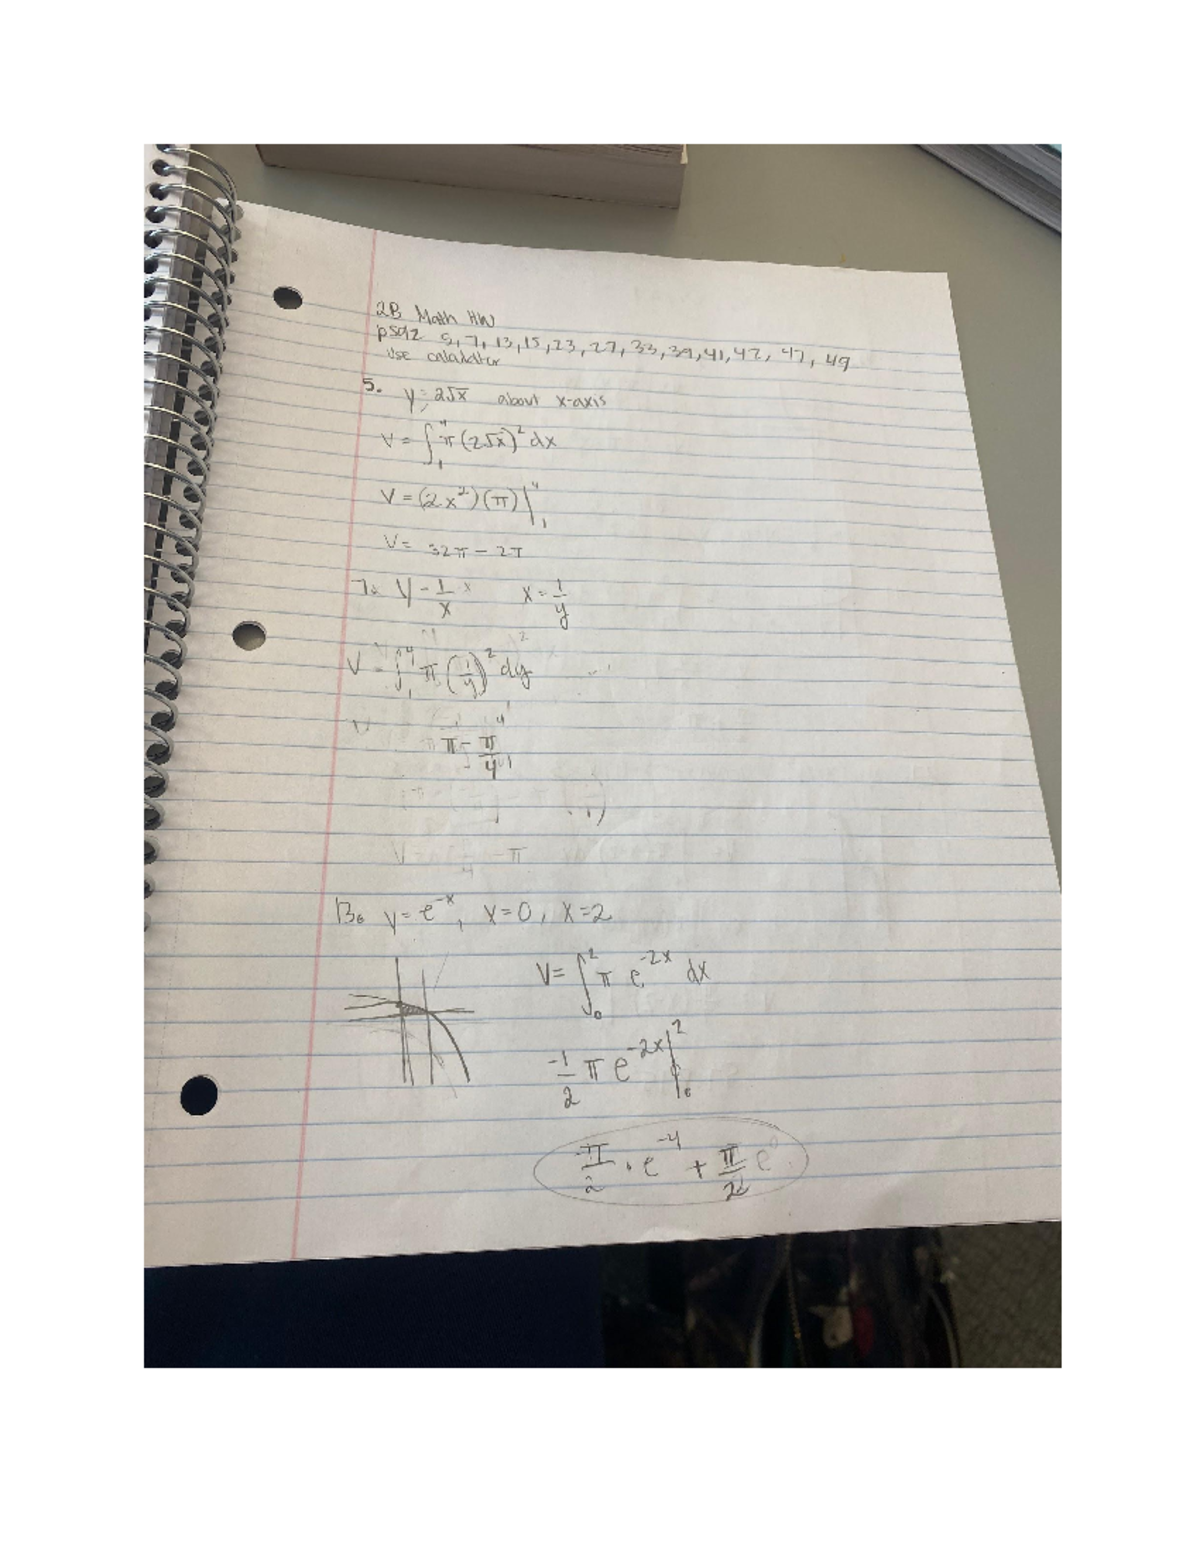 2B Math HW
p592 5, 7, 13, 15, 23, 27, 33, 39, 41, 42, 47, 49
Use calculator
5. y = 2√x about x-axis
V = ∫₁⁴ π(2√x)² dx
V = (2x²)(π)|₁⁴
V = 32π − 2π
7. y = 1/x x = 1/y
V = ∫₁⁴ π(1/y)² dy
V
π − π/4
13. y = e^-x, x=0, x=2
V = ∫₀² π e^-2x dx
-1/2 π e^-2x |₀²
-π/2 · e^-4 + π/2 e⁰